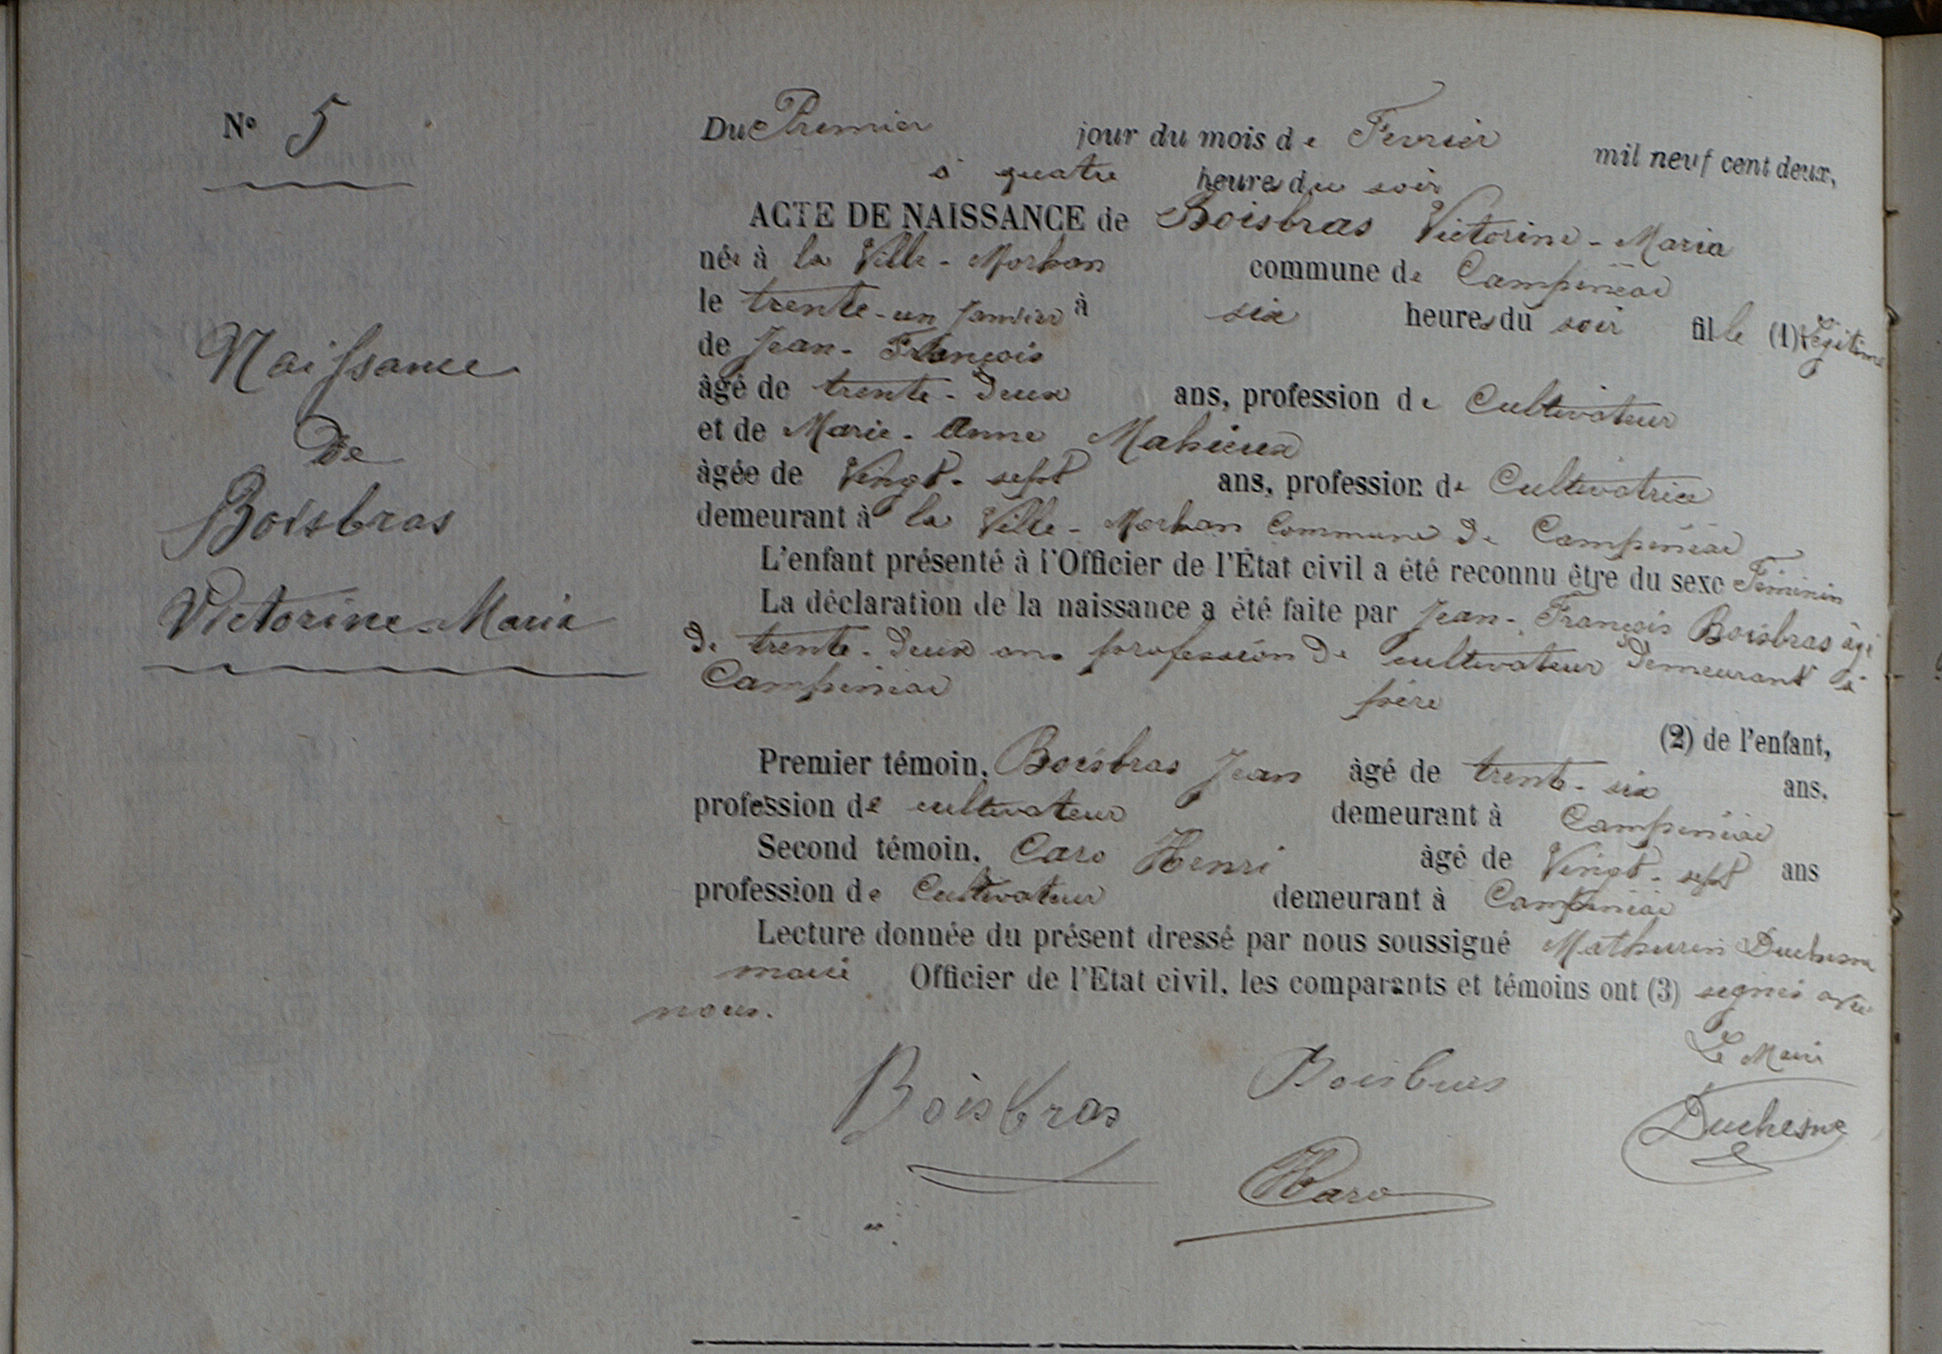 N° 5
Naissance
De
Boisbras
Victorine-Maria
Du Premier jour du mois de Fevrier mil neuf cent deux,
à quatre heures du soir
ACTE DE NAISSANCE de Boisbras Victorine-Maria
née à la Ville-Morhan commune de Campénéac
le trente-un janvier à six heures du soir fille (1) Légitime
de Jean-François
âgé de trente-deux ans, profession de Cultivateur
et de Marie-Anne Mahieux
âgée de Vingt-sept ans, profession de Cultivatrice
demeurant à la Ville-Morhan Commune de Campénéac
L'enfant présenté à l'Officier de l'État civil a été reconnu être du sexe Féminin
La déclaration de la naissance a été faite par Jean-François Boisbras âgé
de trente-deux ans profession de cultivateur demeurant à
Campénéac père
(2) de l'enfant,
Premier témoin, Boisbras Jean âgé de trente-six ans,
profession de cultivateur demeurant à Campénéac
Second témoin, Caro Henri âgé de Vingt-sept ans
profession de Cultivateur demeurant à Campénéac
Lecture donnée du présent dressé par nous soussigné Mathurin Duchesne
maire Officier de l'Etat civil, les comparants et témoins ont (3) signés avec
nous.
Le Maire
Boisbras Boisbras
Duchesne
HCaro